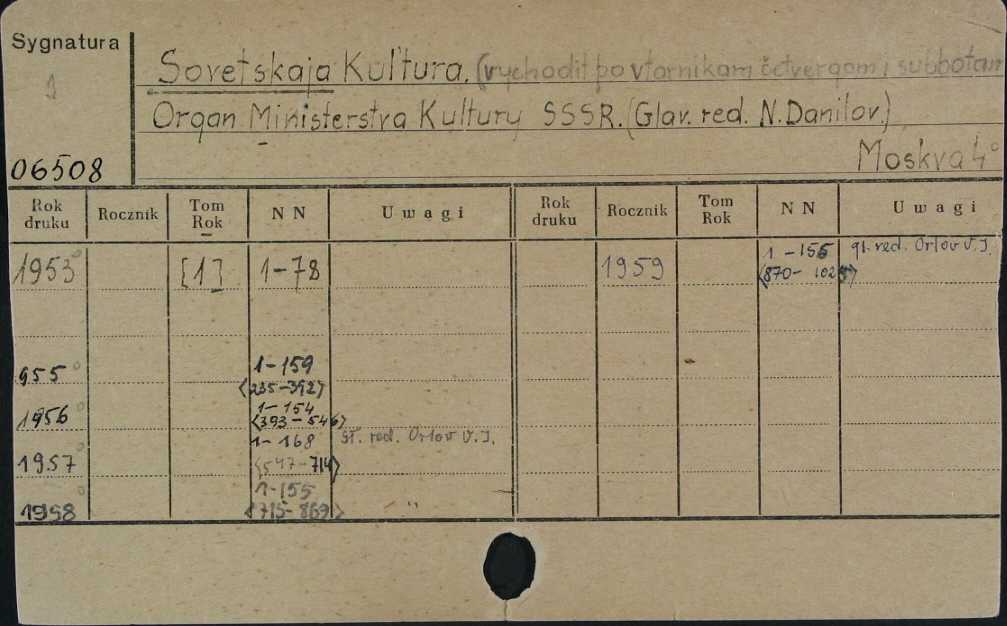 Sygnatura
1
Sovetskaja Kul'tura. (vychodit po vtornikam četvergam i subbotam
Organ Ministerstva Kultury SSSR. (Glav. red. N. Danilov.)
06508
Moskva 4°
Rok druku Rocznik Tom Rok NN Uwagi Rok druku Rocznik Tom Rok NN Uwagi
1953° [1] 1-78
1959 1-155 gł. red. Orlov V. I.
<870-
955° 1-159
<235-392>
1956° 1-154
<393-546>
1957° 1-168 gł. red. Orlov V. I.
<547-714>
1958° 1-155
<715-869> "